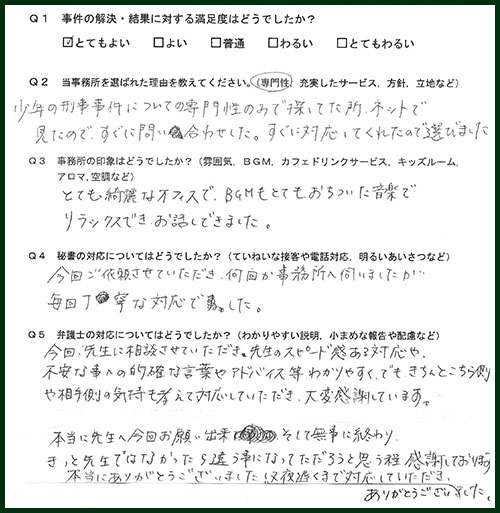 Q1 事件の解決・結果に対する満足度はどうでしたか？
☑とてもよい □よい □普通 □わるい □とてもわるい
Q2 当事務所を選ばれた理由を教えてください。（専門性，充実したサービス，方針，立地など）
少年の刑事事件についての専門性のみで探してた所、ネットで
見たので、すぐに問い合わせした。すぐに対応してくれたので選びました
Q3 事務所の印象はどうでしたか？（雰囲気，ＢＧＭ，カフェドリンクサービス，キッズルーム，
アロマ，空調など）
とても綺麗なオフィスで、BGMもとてもおちついた音楽で
リラックスでき、お話しできました。
Q4 秘書の対応についてはどうでしたか？（ていねいな接客や電話対応，明るいあいさつなど）
今回ご依頼させていただき、何回か事務所へ伺いましたが
毎回丁寧な対応でした。
Q5 弁護士の対応についてはどうでしたか？（わかりやすい説明，小まめな報告や配慮など）
今回、先生に相談させていただき、先生のスピード感ある対応や、
不安な事への的確な言葉やアドバイス等わかりやすく、でもきちんとこちら側
や相手側の気持も考えて対応していただき、大変感謝しています。
本当に先生へ今回お願い出来 そして無事に終わり、
きっと先生ではなかったら違う事になってただろうと思う程 感謝しております
本当にありがとうございました！又夜遅くまで対応していただき、
ありがとうございました。